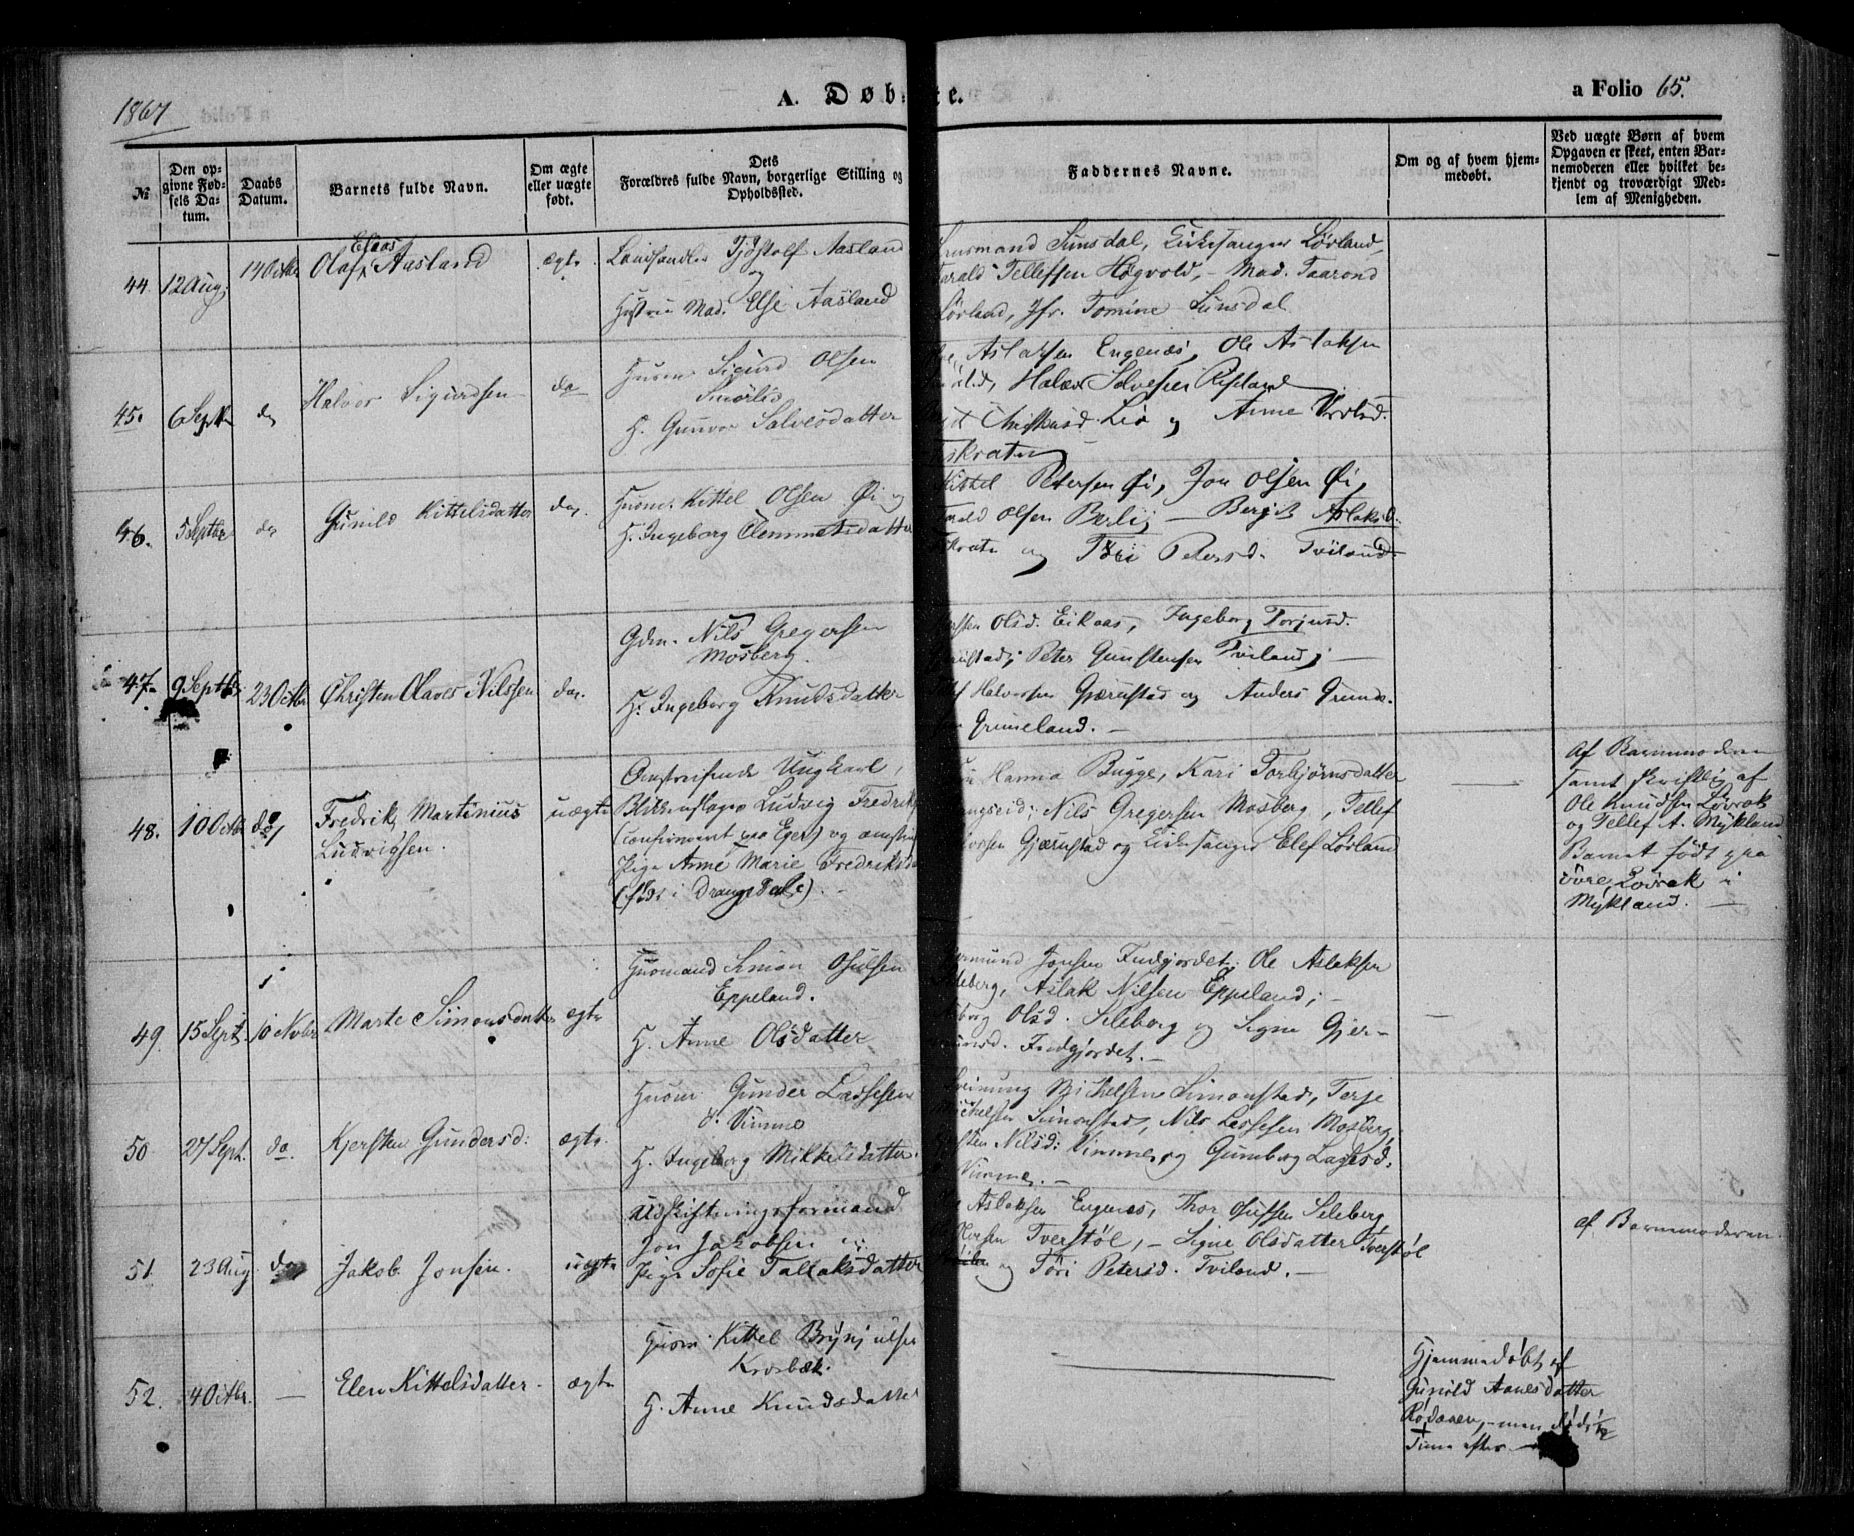 1867
A. Døbte.
a Folio 65.
№
Den opgivne Fødsels Datum.
Daabs Datum.
Barnets fulde Navn.
Om ægte eller uægte født.
Dets Forældres fulde Navn, borgerlige Stilling og Opholdssted.
Faddernes Navne.
Om og af hvem hjemmedøbt.
Ved uægte Børn af hvem Opgaven er skeet, enten Barnemoderen eller hvilket bekjendt og troværdigt Medlem af Menigheden.
44. 12 Aug. 14 Octbr Olaf Aasland ægte.
Landhandler Tjøstolf Aasland
og
Hustru Mad. Else Aasland
Lensmand Sunsdal, Kirkesanger Lövland,
Tellefsen Høgvold, – Mad. Taarond
Lövland, Jfr. Tomine Sunsdal
45. 6 Septbr do Halvor Sigurdsen do
Husm. Sigurd Olsen
H. Gunvor Salvesdatter
Aslaksen Engenæs, Ole Aslaksen
Halvor Salvesen Risland
Christensd. Lie og Anne
Askraten
46. 5 Septbr do Gunild Kittelsdatter do.
Husm. Kittel Olsen Øi og
H. Ingeborg Clemmetsdatter
Kittel Petersen Øi, Jon Olsen Øi,
Olsen Berlij – Bergit Aslaksd.
og Töri Petersd. Tviland
47. 9 Septbr 23 Octbr Christen Olaves Nilssen do.
Gdm. Nils Gregersen
Mosberg.
H. Ingeborg Knudsdatter
Olsd. Eikaas, Ingeborg Torjusd.
Peter Gunstensen Tviland; –
Halvorsen Gjærustad og Anders
Grimeland. –
48. 10 Octbr do Fredrik Martinius
Ludvigsen.
uægte
Omstreifende Ungkarl,
Blikkenslager Ludvig Fredriks
(confirmeret paa Eger) og omstr.
Pige Anne Marie Fredriksd
(født i Drangedal). –
Hanna Bugge, Kari Torbjørnsdatter
Nils Gregersen Mosberg, Tellef
Gjærustad og Kirkesanger Elef Lövland
Af Barnmoderen
samt skriftlig af
Ole Knudsen Lövrak
og Tellef A. Mykland
Barnet født paa
övre Lövrak i
Mykland. –
49. 15 Sept. 10 Novbr Marte Simonsdatter ægte
Husmand Simon Osulsen
Eppeland.
H. Anne Olsdatter
Jonsen Findgjordet, Ole Aslaksen
Seleberg, Aslak Nilsen Eppeland; –
Olsd. Seleberg og Signe Gjer–
mundsd. Findgjordet. –
–
50 27 Sept. do. Kjersten Gundersd: ægte.
Husm. Gunder Lassesen
Vimme
H. Ingeborg Mikkelsdatter.
Michelsen Simonstad, Terje
Michelsen Simonstad, Nils Lassesen Mosberg,
Nilsd: Vimme og Gunborg Lassesd.
Vimme. –
51. 23 Aug do Jakob Jonsen. uægte
Udskiftningsformand
Jon Jakobsen og
Pige Sofie Tallaksdatter
Aslaksen Engenæs, Thor Osulfsen Seleberg
Tverstøl, – Signe Olsdatter Tverstøl
og Töri Petersd. Tviland. –
af Barnemoderen.
52. 4 Octbr. – Elen Kittelsdatter. ægte
Husm. Kittel Brynjulfsen
Krosbæk.
H. Anne Knudsdatter
Hjemmedøbt af
Gunild Aanesdatter
– men døde ½
Time efter –